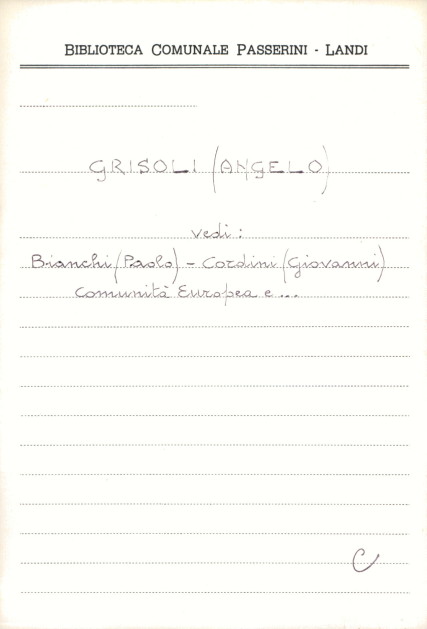 BIBLIOTECA COMUNALE PASSERINI - LANDI
GRISOLI (ANGELO)
vedi:
Bianchi (Paolo) - Cordini (Giovanni)
Comunità Europea e ...
C